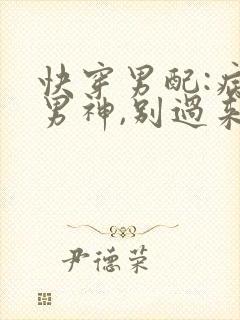 快穿男配:病
男神,别過来
尹德荣